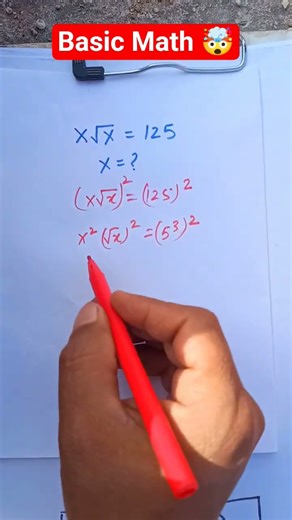 Basic Math 🤯
x√x = 125
x = ?
(x√x)² = (125)²
x² (√x)² = (5³)²